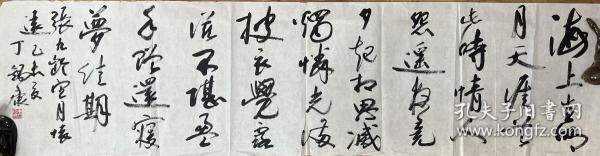 海上生明
月天涯共
此時情人
怨遥夜竟
夕起相思滅
燭憐光滿
披衣覺露
滋不堪盈
手贈還寢
夢佳期
張九龄望月懷
遠乙未夏
丁錫康
孔夫子旧书网
www.kongfz.com